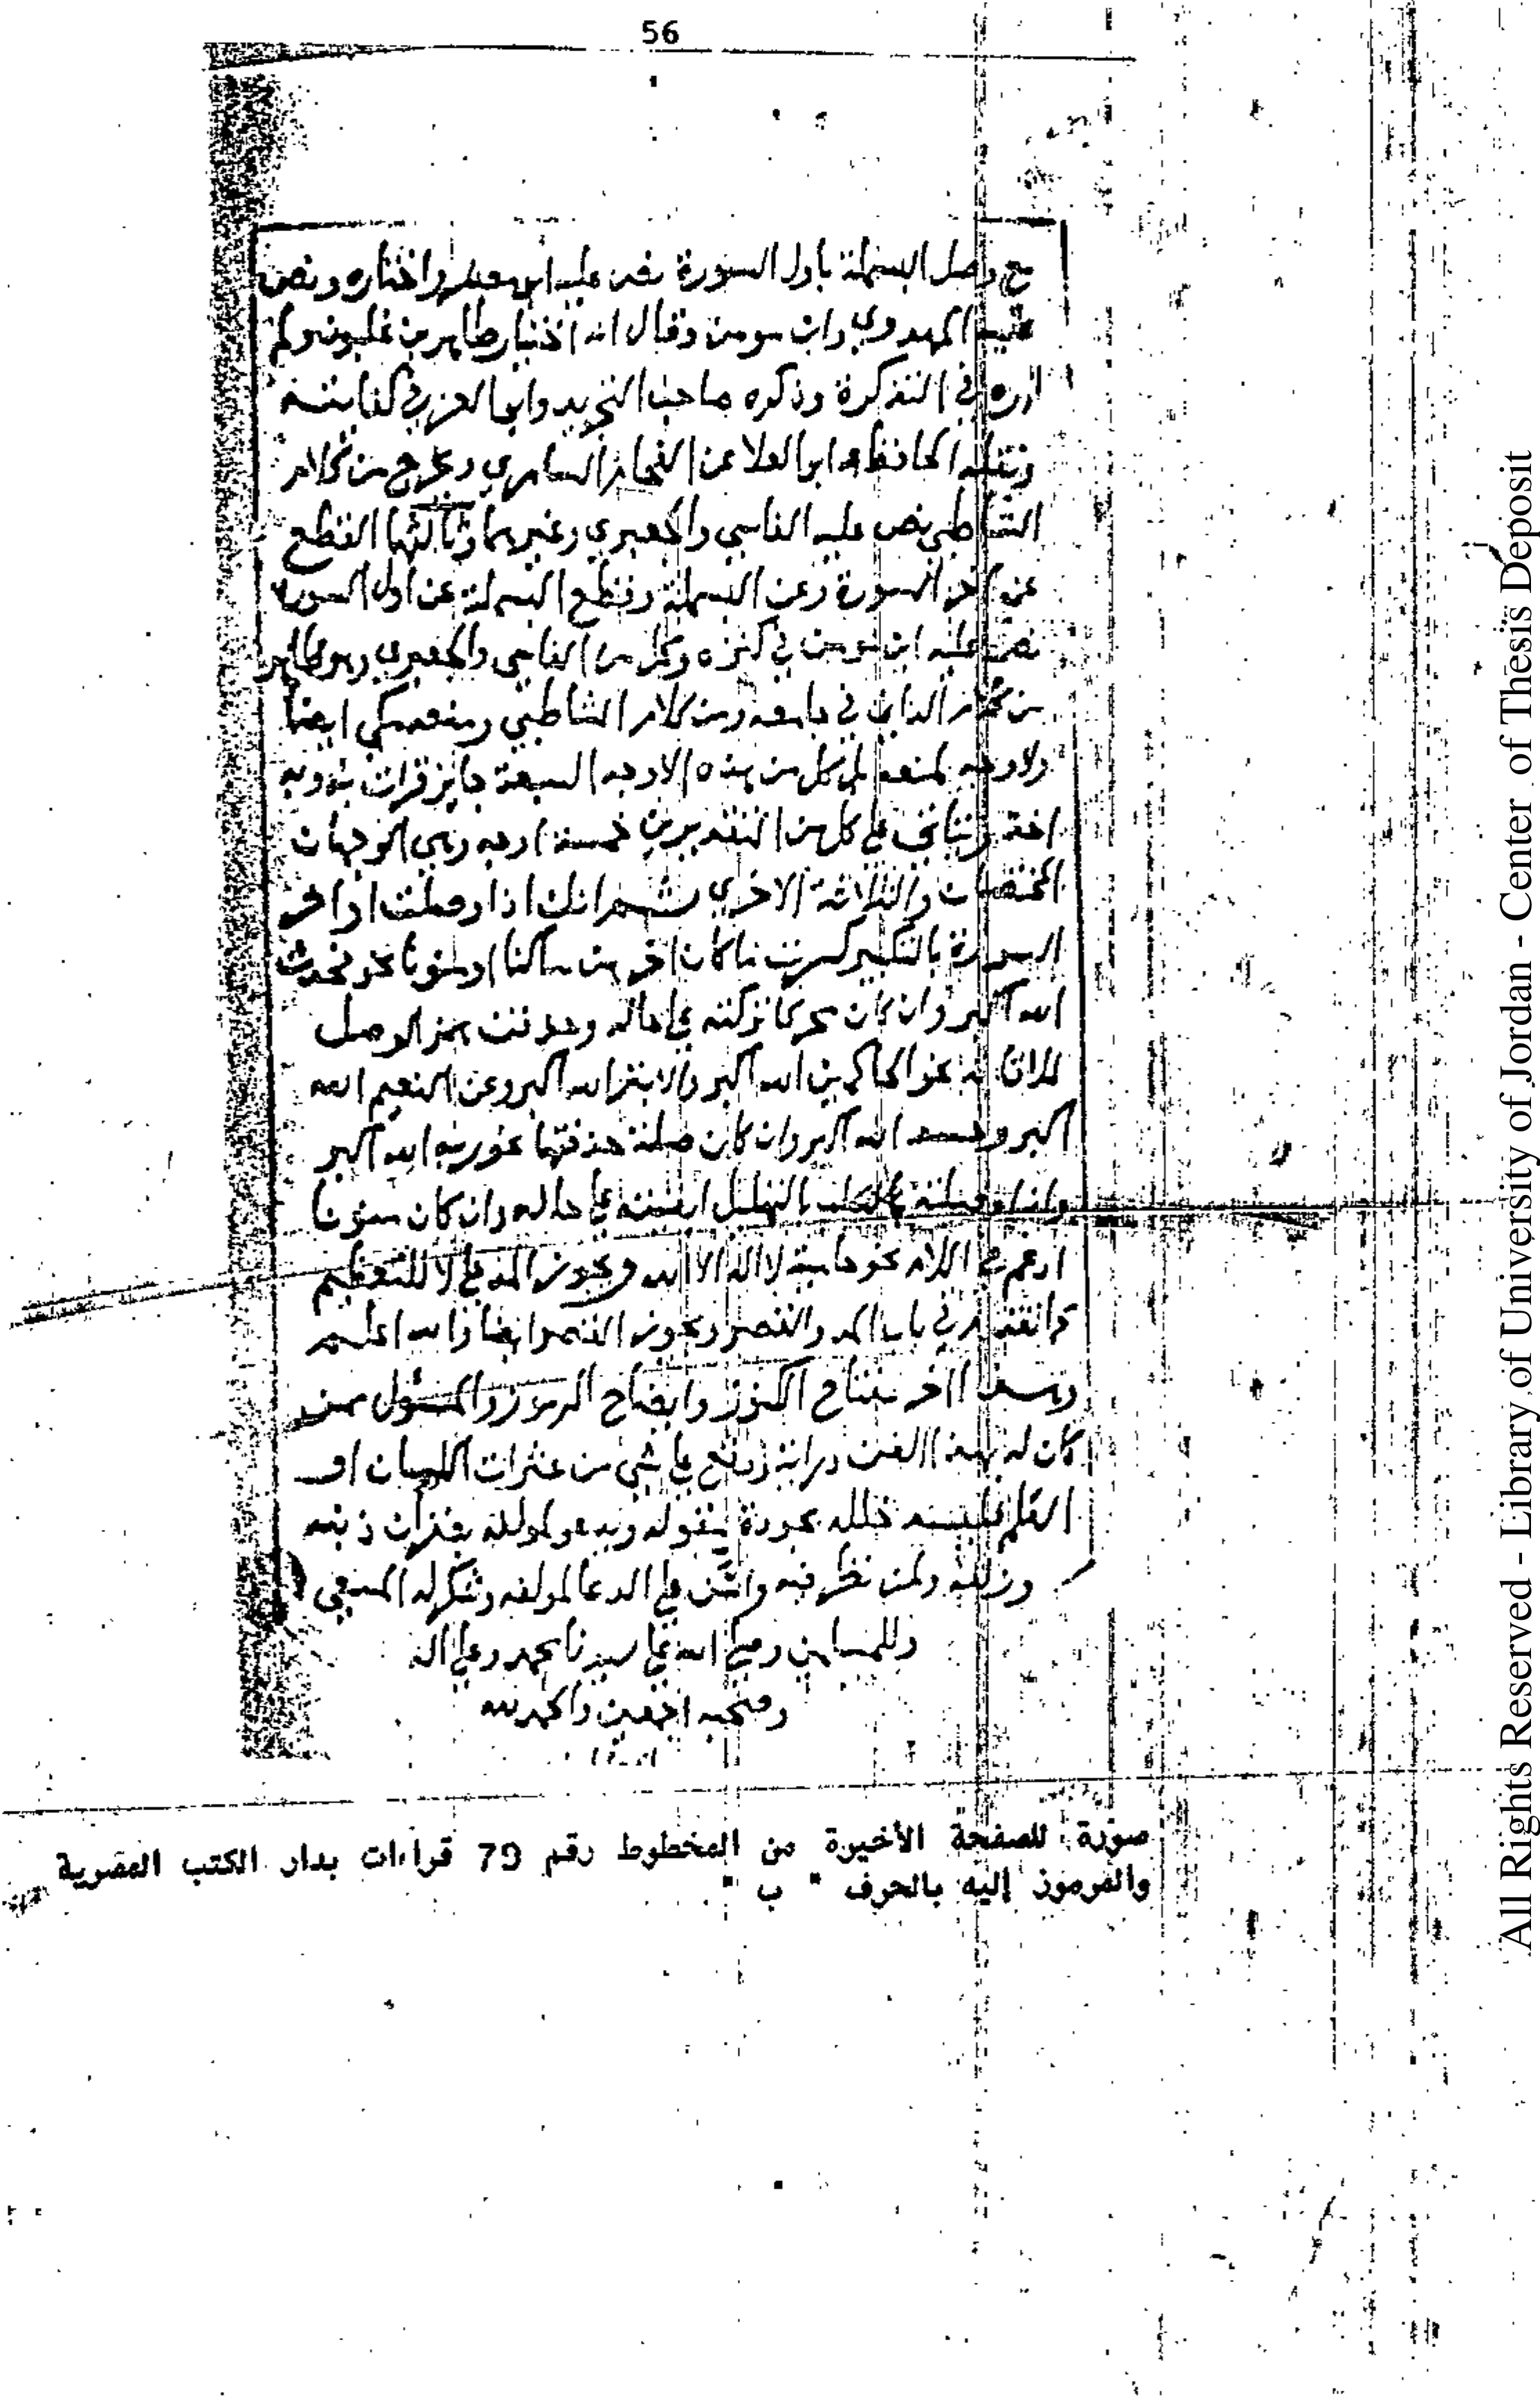 56
مع وصل البسملة باول السورة نص عليه ابن معشر واختاره ونص
عليه المهدوي وابن سومن وقال انه اختيار طاهر بن غلبون ولم
اره في التذكرة وذكره صاحب التجريد وابو العز في كفايته
ونقله الحافظ ابو العلا عن الفحام السامري ويخرج من كلام
الشاطبي نص عليه الفاسي والجعبري وغيرهما وثالثها القطع
عن اخر السورة وعن البسملة وقطع البسملة عن اول السورة
نص عليه ابن مومن في كنزه وكل من الفاسي والجعبري وهو ظاهر
من كلام الداني في جامعه ومن كلام الشاطبي ومنعه مكي ايضا
ولا وجه لمنعه بل كل من هذه الاوجه السبعة جايز قرات به وبه
اخذ ويتاتى على كل من التقديرين خمسة اوجه وهي الوجهان
المختصان والثلاثة الاخرى ثم انك اذا وصلت اواخر
السورة بالتكبير كسرت ما كان اخرهن ساكنا او منونا نحو فحدث
الله اكبر وان كان محركا تركته على حاله وحذفت همز الوصل
نحو الحاكمين الله اكبر والابتر الله اكبر وعن النعيم الله
اكبر وحسد الله اكبر وان كان صلة حذفتها نحو ربه الله اكبر
وان وصلته بالتهليل ابقيته على حاله وان كان منونا
ادغم في اللام نحو حامية لا اله الا الله ويجوز المد على لا للتعظيم
كما تقدم في باب المد والقصر ويجوز القصر ايضا والله اعلم
وهذا اخر مفتاح الكنوز وايضاح الرموز والمسئول ممن
كان له بهذا الفن دراية وقع على شي من عثرات اللسان او
القلم خلله بجودة يقوله ويدعو لمولفه بغفران ذنبه
وزلته ولمن نظر فيه وامن على الدعا لمولفه وشكر له المسعى
وللمسلمين وصلى الله على سيدنا محمد وعلى اله
وصحبه اجمعين والحمد لله
صورة للصفحة الأخيرة من المخطوط رقم 79 قراءات بدار الكتب المصرية
والمرموز إليه بالحرف " ب "
All Rights Reserved - Library of University of Jordan - Center of Thesis Deposit